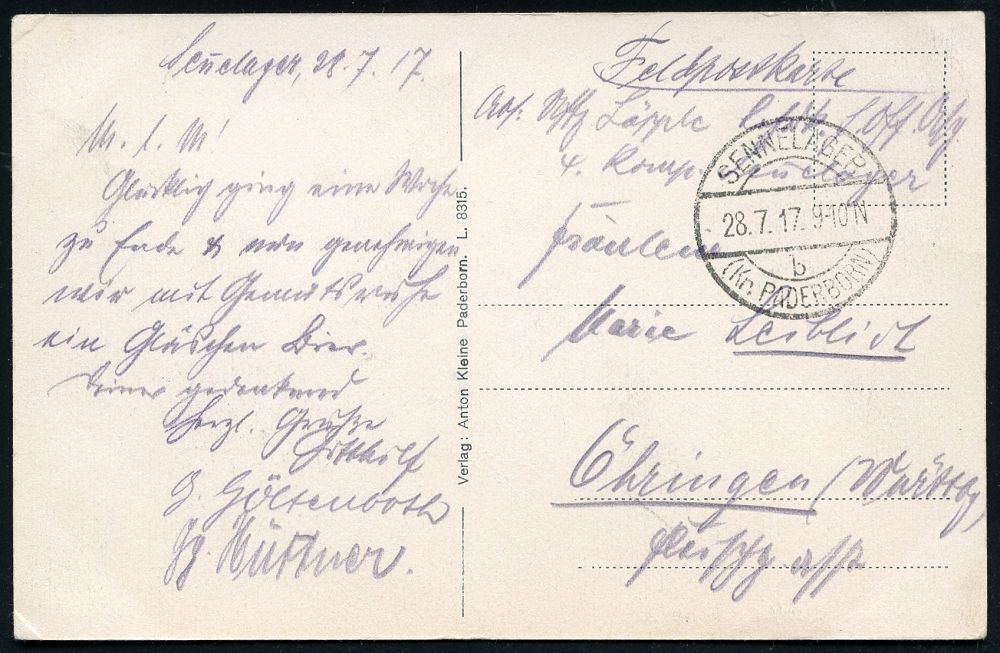 Sennelager, 28.7.17.
M. l. M!
Glücklich ging eine Woche
zu Ende & nun genehmigen
wir mit Gemütsruhe
ein Gläschen Bier.
Deiner gedenkend
herzl. Grüße
Gotthilf
G. Göltenboth
Hüttner.
Verlag: Anton Kleine Paderborn. L. 8315.
Feldpostkarte
Abs: Löpple
4. Komp. Sennelager
SENNELAGER
28.7.17. 9-10 N
b
(Kr. PADERBORN)
Fräulein
Marie Leiblich
Öhringen (Württbg,